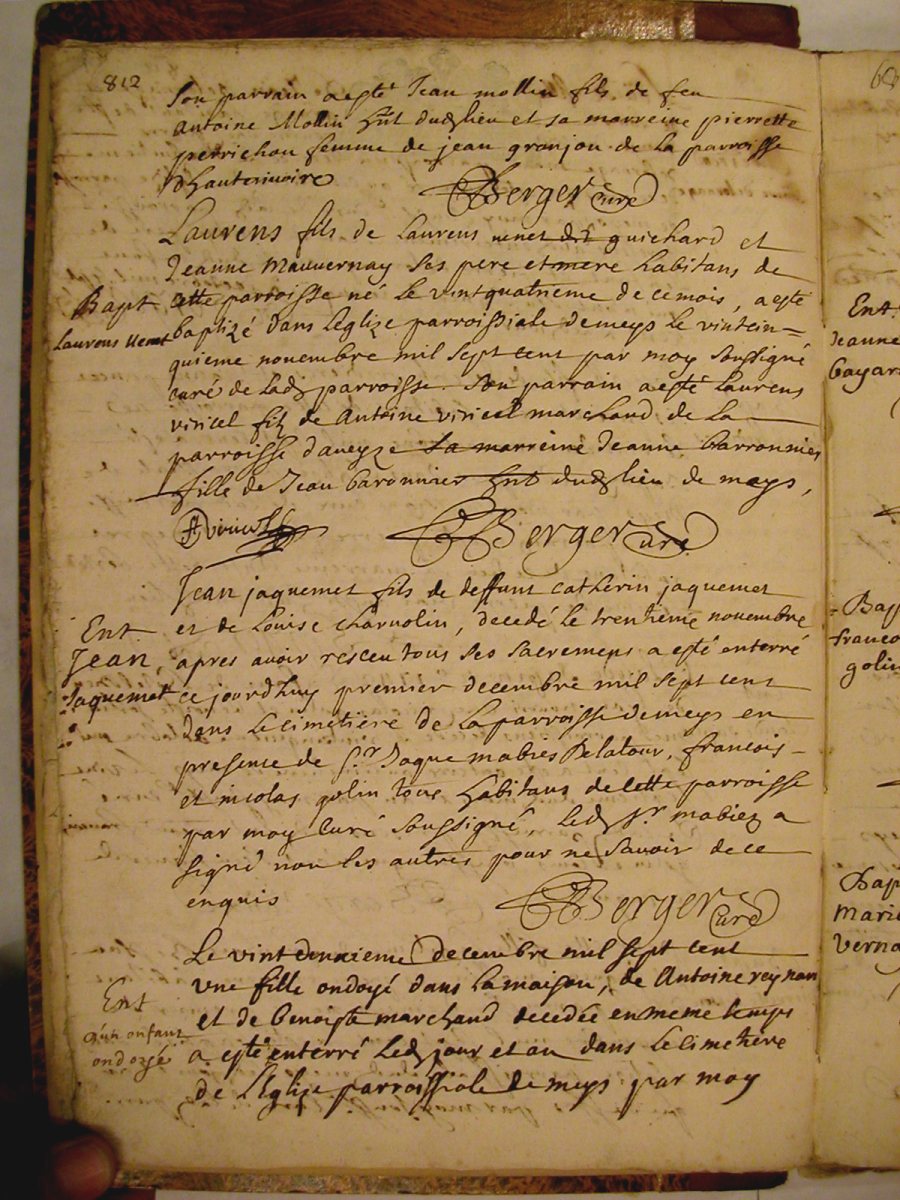 812
Son parrain a esté Jean mollin fils de feu
Antoine Mollin hnt dudz lieu et sa marreine pierrette
perrichon femme de jean granjon de la parroisse
dhauterivoire
Berger curé
Laurens fils de Laurens venet dit guichard et
Jeanne Mauvernay ses pere et mere habitans de
cette parroisse né le vintquatrieme de ce mois, a esté
Bapt
Laurens Venet
baptizé dans leglize parroissiale de meys le vintcin=
quieme novembre mil sept cent par moy soussigné
curé de ladz parroisse. Son parrain a esté Laurens
viricel filz de Antoine viricel marchand de la
parroisse daveyze sa marreine Jeanne barronnier
fille de Jean baronnier hnt dudz lieu de meys,
Berger curé
Jean jaquemet fils de deffunt catherin jaquemet
et de Louise charvolin, decedé le trentieme novembre
Ent
Jean
Jaquemet
apres avoir resceu tous ses sacremens a esté enterré
ce jourdhuy premier decembre mil sept cent
dans le cimetiere de la parroisse de meys en
presence de Sr. Jaque mabiés Delatour, francois
et nicolas golin tous habitans de cette parroisse
par moy curé soussigné, ledz Sr. mabiez a
signé non les autres pour ne savoir de ce
enquis
Berger curé
Le vintdeuxieme decembre mil sept cent
une fille ondoyé dans la maison, de Antoine reynard
Ent
d'un enfant
ondoyé
et de benoiste marchand decedée en meme temps
a esté enterré ledz jour et an dans le cimetiere
de l'Eglize parroissiale de meys par moy
Ent.
Jeanne
Bap
francoi
golin
Bap
Mari
verna